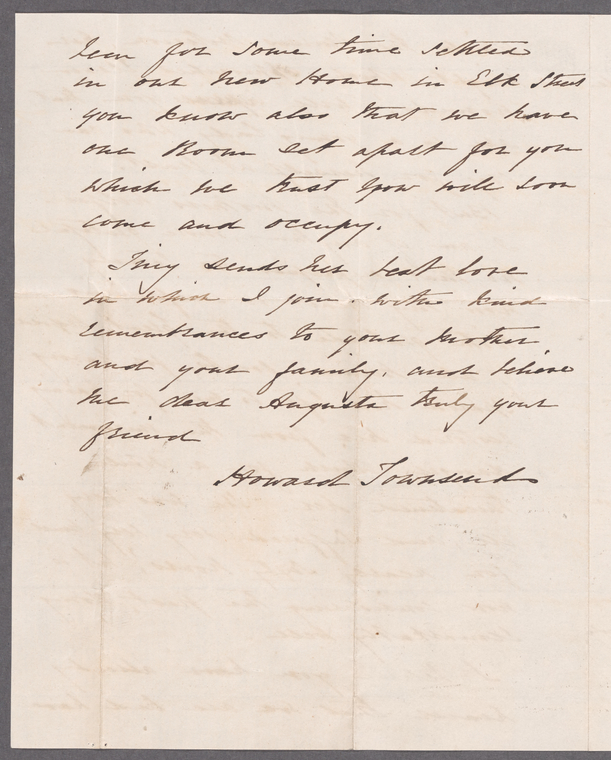 been for some time settled
in our New Home in Elk Street
you know also that we have
one Room set apart for you
which we trust you will soon
come and occupy.
Tiny sends her best love
in which I join. with kind
remembrances to your Mother
and your family. and believe
me dear Augusta truly your
friend
Howard Townsend